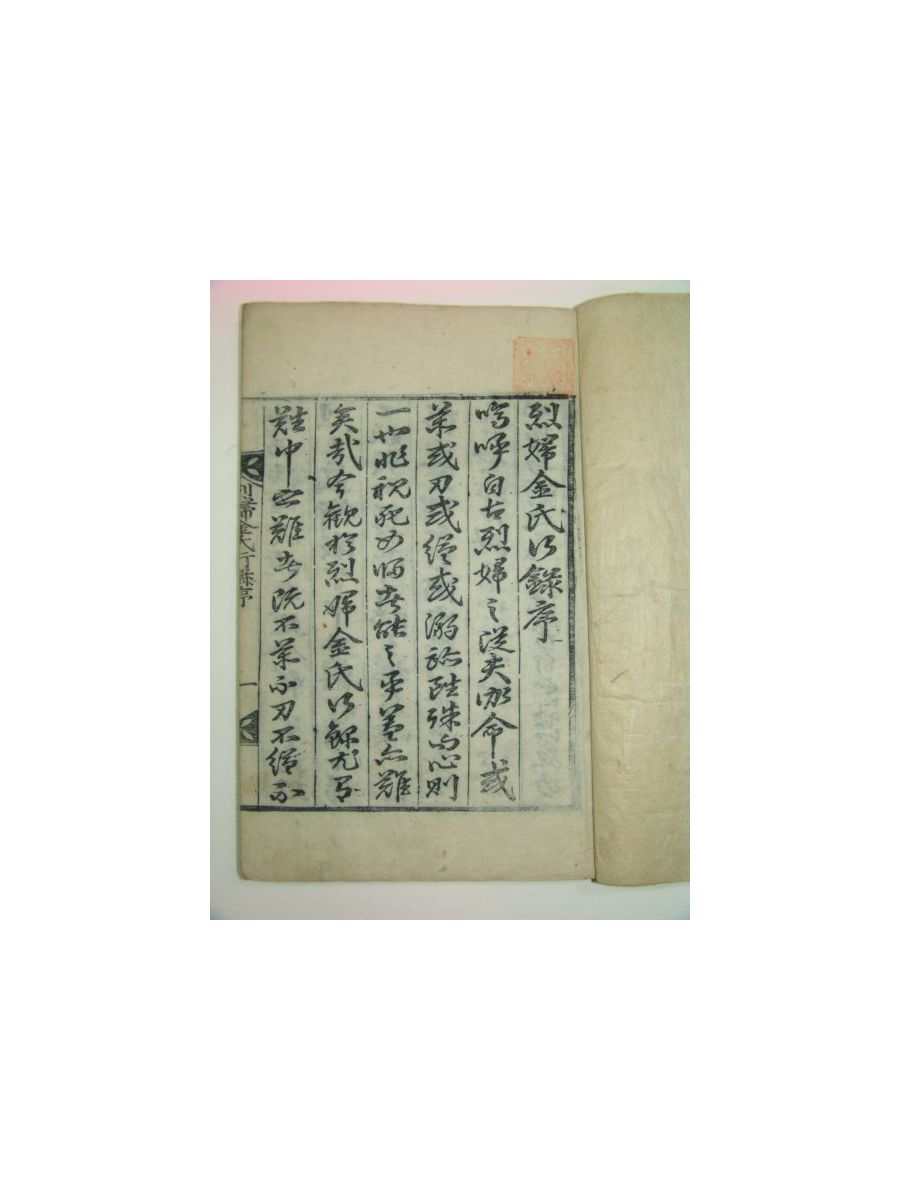 烈婦金氏行錄序
嗚呼自古烈婦之從夫命或
藥或刃或縊或溺跡雖殊而心則
一也非視死如歸者能之乎蓋亦難
矣哉今觀於烈婦金氏行錄尤
難中之難者旣不藥不刃不縊不
烈婦金氏行錄序 一